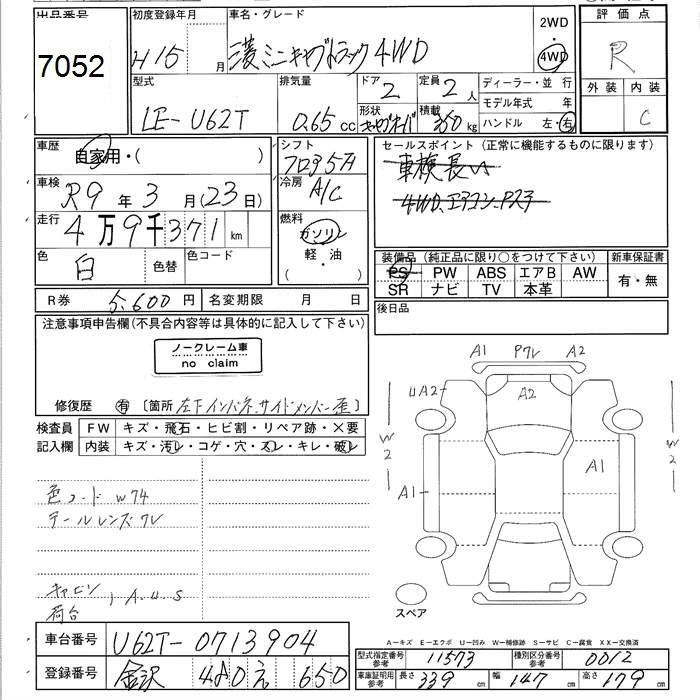 出品番号
7052
初度登録年月
H15 月
車名・グレード
三菱ミニキャブトラック4WD
2WD
・
4WD
評価点
R
外装 内装
C
型式
LE-U62T
排気量
0.65 cc
ドア
2
定員
2 人
形状
積載
350 kg
ディーラー・並 行
モデル年式 年
ハンドル 左・右
車歴
自家用・( )
車検
R9 年 3 月(23日)
走行
4万9千371 km
色
白
色替
色コード
シフト
フロア5F
冷房
A/C
燃料
ガソリン
軽・油
・( )
セールスポイント(正常に機能するものに限ります)
車検長い
4WD、エアコン、P.ステ
装備品(純正品に限り○をつけて下さい) 新車保証書
PS PW ABS エアB AW
SR ナビ TV 本革
有・無
R券
6,600円
名変期限 月 日
後日品
注意事項申告欄(不具合内容等は具体的に記入して下さい)
ノークレーム車
no claim
修復歴 有 〔箇所 左下インパネ、サイドメンバー歪〕
検査員 FW キズ・飛石・ヒビ割・リペア跡・×要
記入欄 内装 キズ・汚レ・コゲ・穴・スレ・キレ・破レ
色コード W74
テールレンズワレ
キャビン
荷台
A.U.S
A1 Pワレ A2
UA2
A2
W2
W2
A1
A1
スペア
A-キズ E-エクボ U-凹み W-補修跡 S-サビ C-腐食 XX-交換済
車台番号 U62T-0713904
登録番号 金沢 480 え 650
型式指定番号 参考 11573 種別区分番号 参考 0012
車庫証明用 参考 長さ 339 cm 幅 147 cm 高さ 179 cm